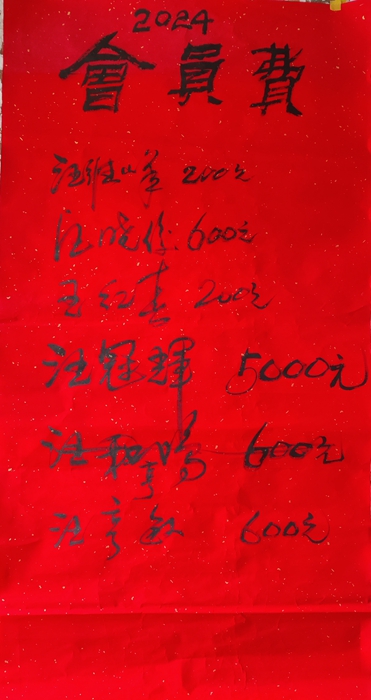 2024
會員費
汪維山 200元
汪晓 600元
王红春 200元
汪冠輝 5000元
汪 亨鸣 600元
汪亨敏 600元